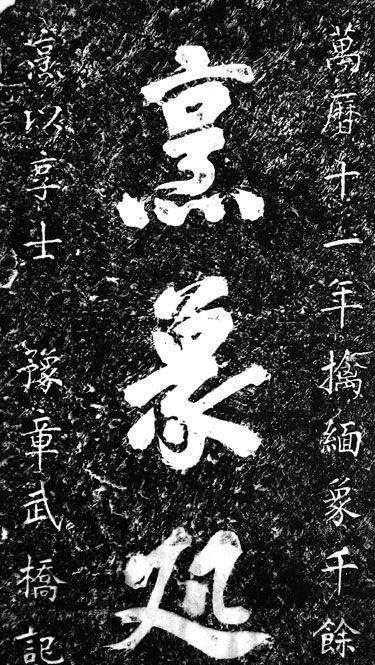 萬曆十一年擒緬象千餘
烹象処
烹以享士 豫章武橋記